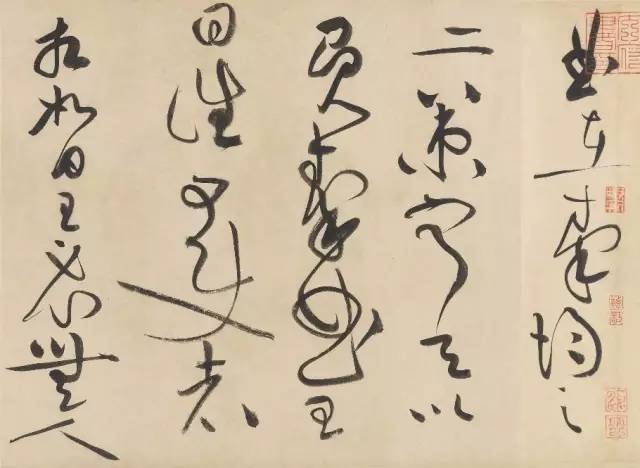 曲在秦均之
二策寧許以
負秦曲王
曰誰可使者
相如曰王必無人